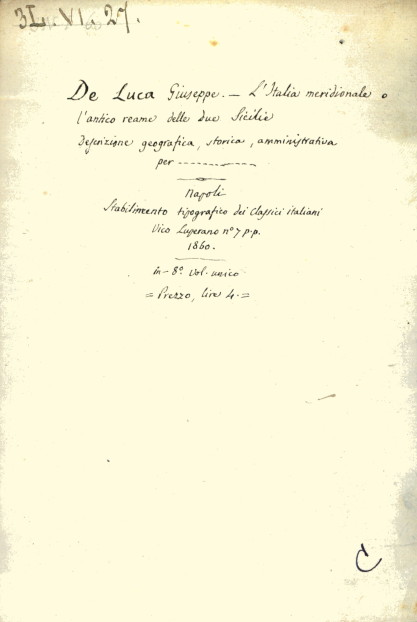 3L. VI. 27.
De Luca Giuseppe. — L'Italia meridionale o
l'antico reame delle due Sicilie
Descrizione geografica, storica, amministrativa
per -----------
Napoli
Stabilimento tipografico dei Classici italiani
Vico Luperano nº 7 p.p.
1860.
in-8º vol. unico
= Prezzo, lire 4. =
C